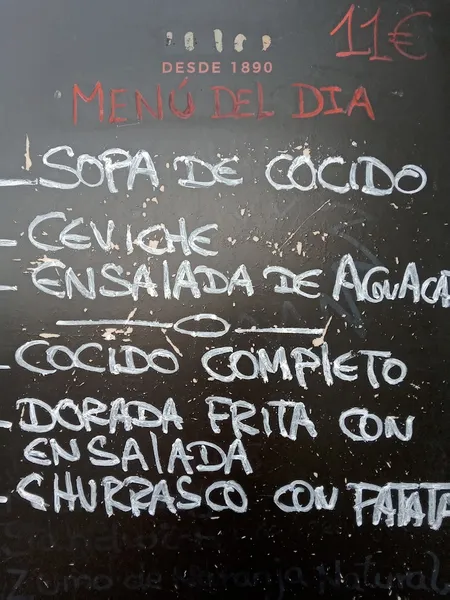 11€
DESDE 1890
MENÚ DEL DIA
- SOPA DE COCIDO
- CEVICHE
- ENSALADA DE AGUACA
—o—
- COCIDO COMPLETO
- DORADA FRITA CON
ENSALADA
- CHURRASCO CON PATATA
Zumo de Naranja Natural